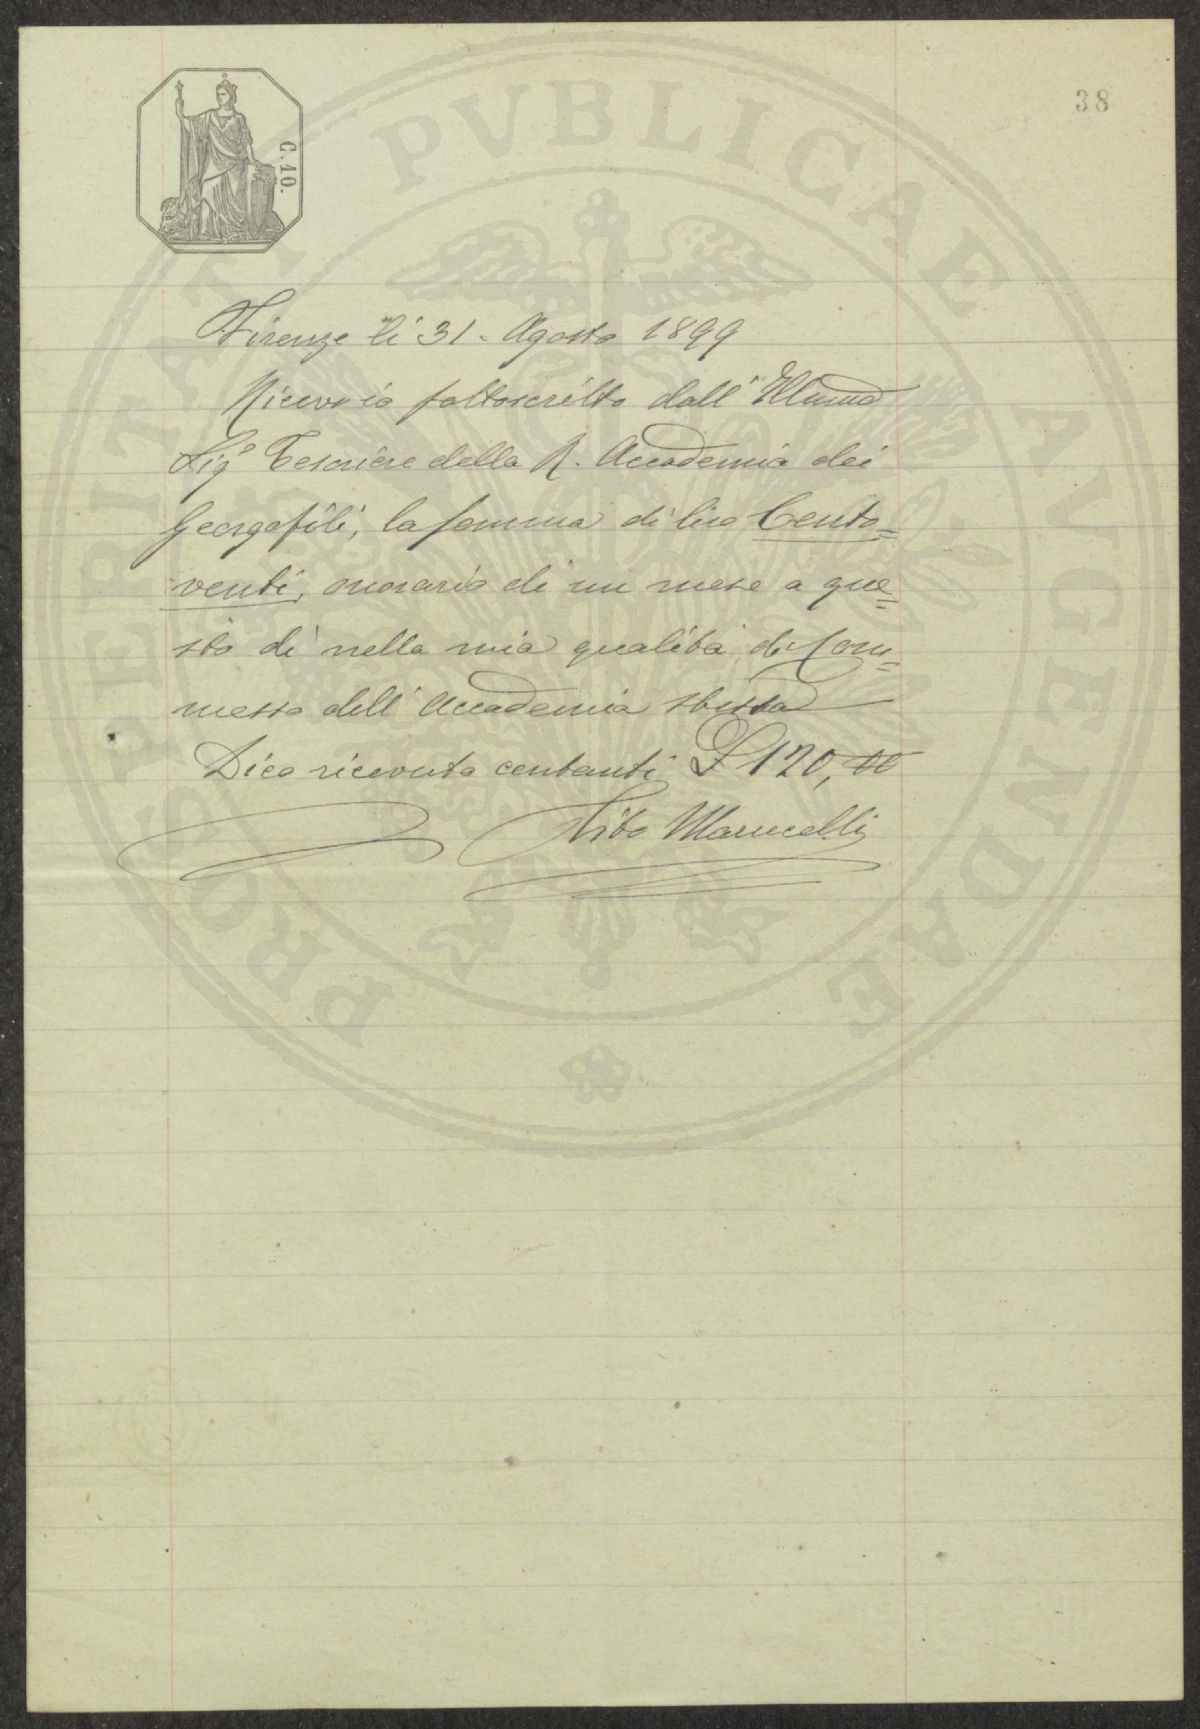 38
C. 10.
PROSPERITATI PVBLICAE AVGENDAE
Firenze li 31. Agosto 1899
Ricevo io sottoscritto dall' Illumo
Sigr Tesoriere della R. Accademia dei
Georgofili, la somma di lire Cento=
venti, onorario di un mese a que=
sto dì nella mia qualità di Com=
messo dell' Accademia stessa
Dico ricevuto contanti £ 120,00
Tito Marucelli